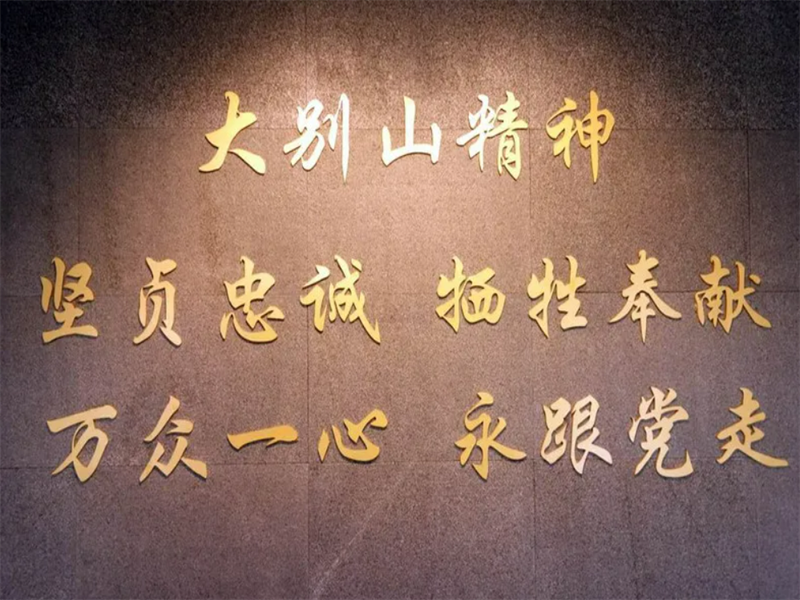 大别山精神
坚贞忠诚 牺牲奉献
万众一心 永跟党走